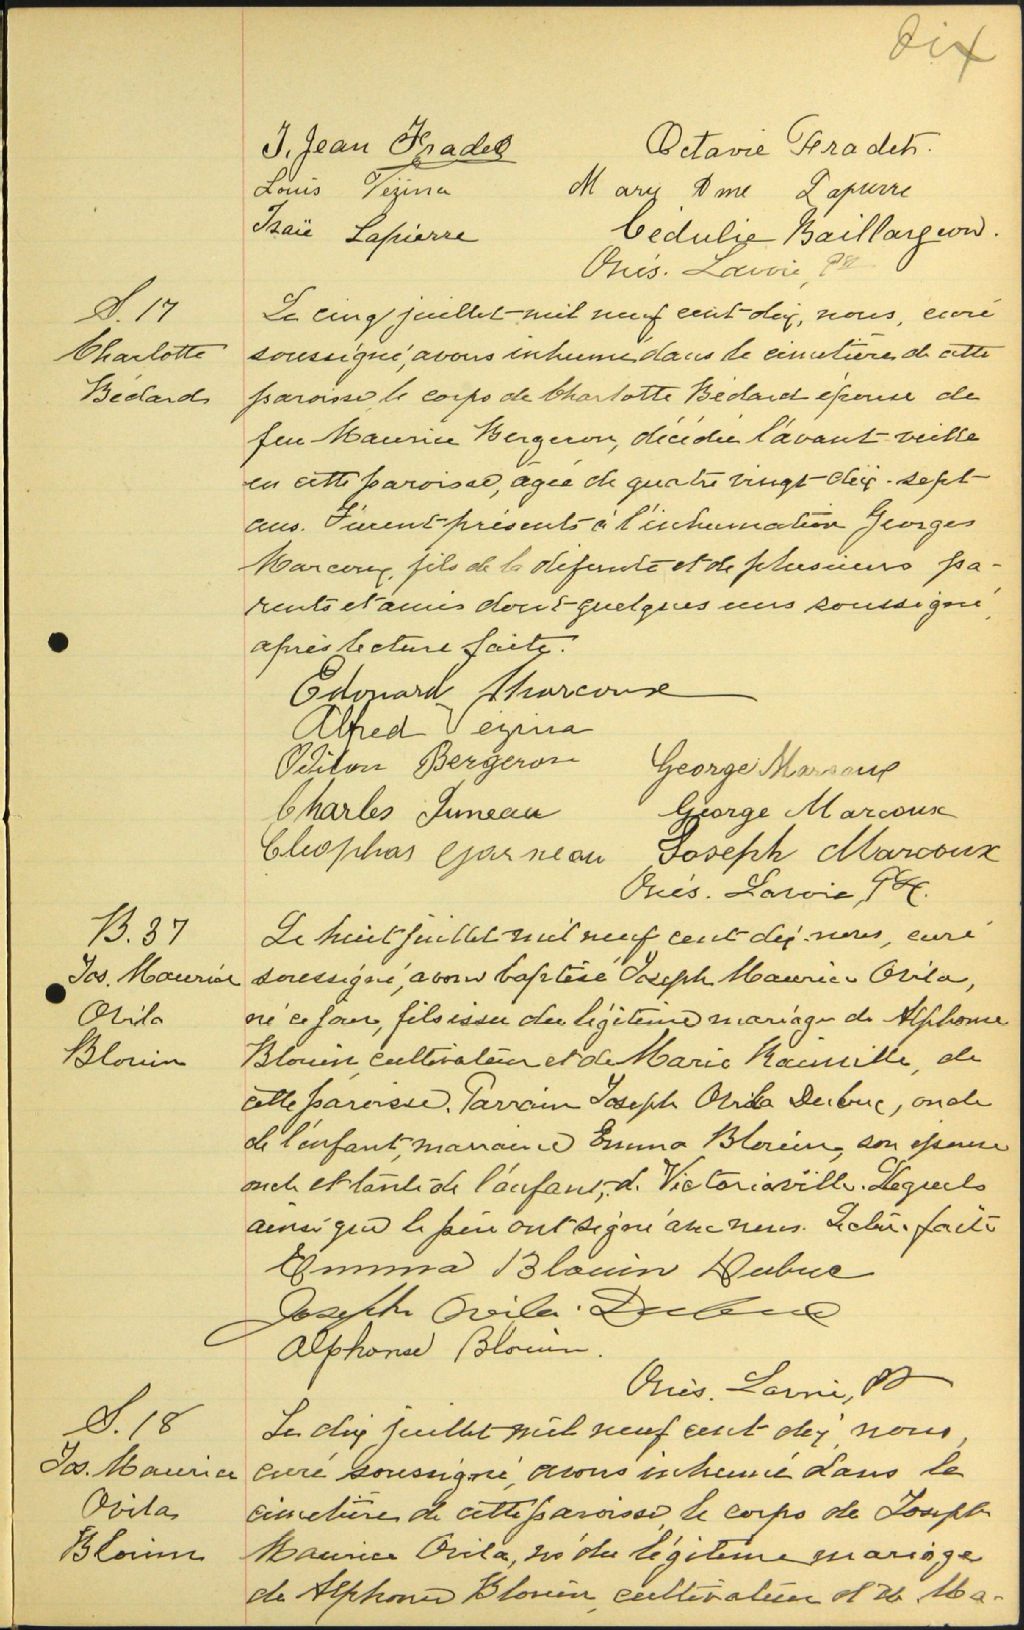 dix
J. Jean Fradet Octavie Fradet.
Louis Vézina Mary Dme Lapierre
Isaïe Lapierre Cédulie Baillargeon.
Onés. Lavoie, Ptr
S. 17 Le cinq juillet mil neuf cent dix, nous, curé
Charlotte soussigné, avons inhumé dans le cimetière de cette
Bédard paroisse, le corps de Charlotte Bédard épouse de
feu Maurice Bergeron, décédée l'avant-veille
en cette paroisse, âgée de quatre vingt-dix-sept
ans. Furent présents à l'inhumation Georges
Marcoux, fils de la défunte et de plusieurs pa-
rents et amis dont quelques uns soussigné,
après lecture faite.
Edouard Marcoux
Alfred Vezina
Odilon Bergeron George Marcoux
Charles Juneau George Marcoux
Cleophas Garneau Joseph Marcoux
Onés. Lavoie, Ptr.
B. 37 Le huit juillet mil neuf cent dix nous, curé
Jos. Maurice soussigné, avons baptisé Joseph Maurice Ovila,
Ovila né ce jour, fils issu du légitime mariage de Alphonse
Blouin Blouin, cultivateur et de Marie, de
cette paroisse. Parrain Joseph Ovila Dubuc, oncle
de l'enfant, marraine Emma Blouin, son épouse
oncle et tante de l'enfant, de Victoriaville. Lesquels
ainsi que le père ont signé avec nous. Lecture faite
Emma Blouin Dubuc
Joseph Ovila Dubuc
Alphonse Blouin.
Onés. Lavoie, Ptr
S. 18 Le dix juillet mil neuf cent dix, nous,
Jos. Maurice curé soussigné, avons inhumé dans le
Ovila cimetière de cette paroisse, le corps de Joseph
Blouin Maurice Ovila, né du légitime mariage
de Alphonse Blouin, cultivateur et de Ma-